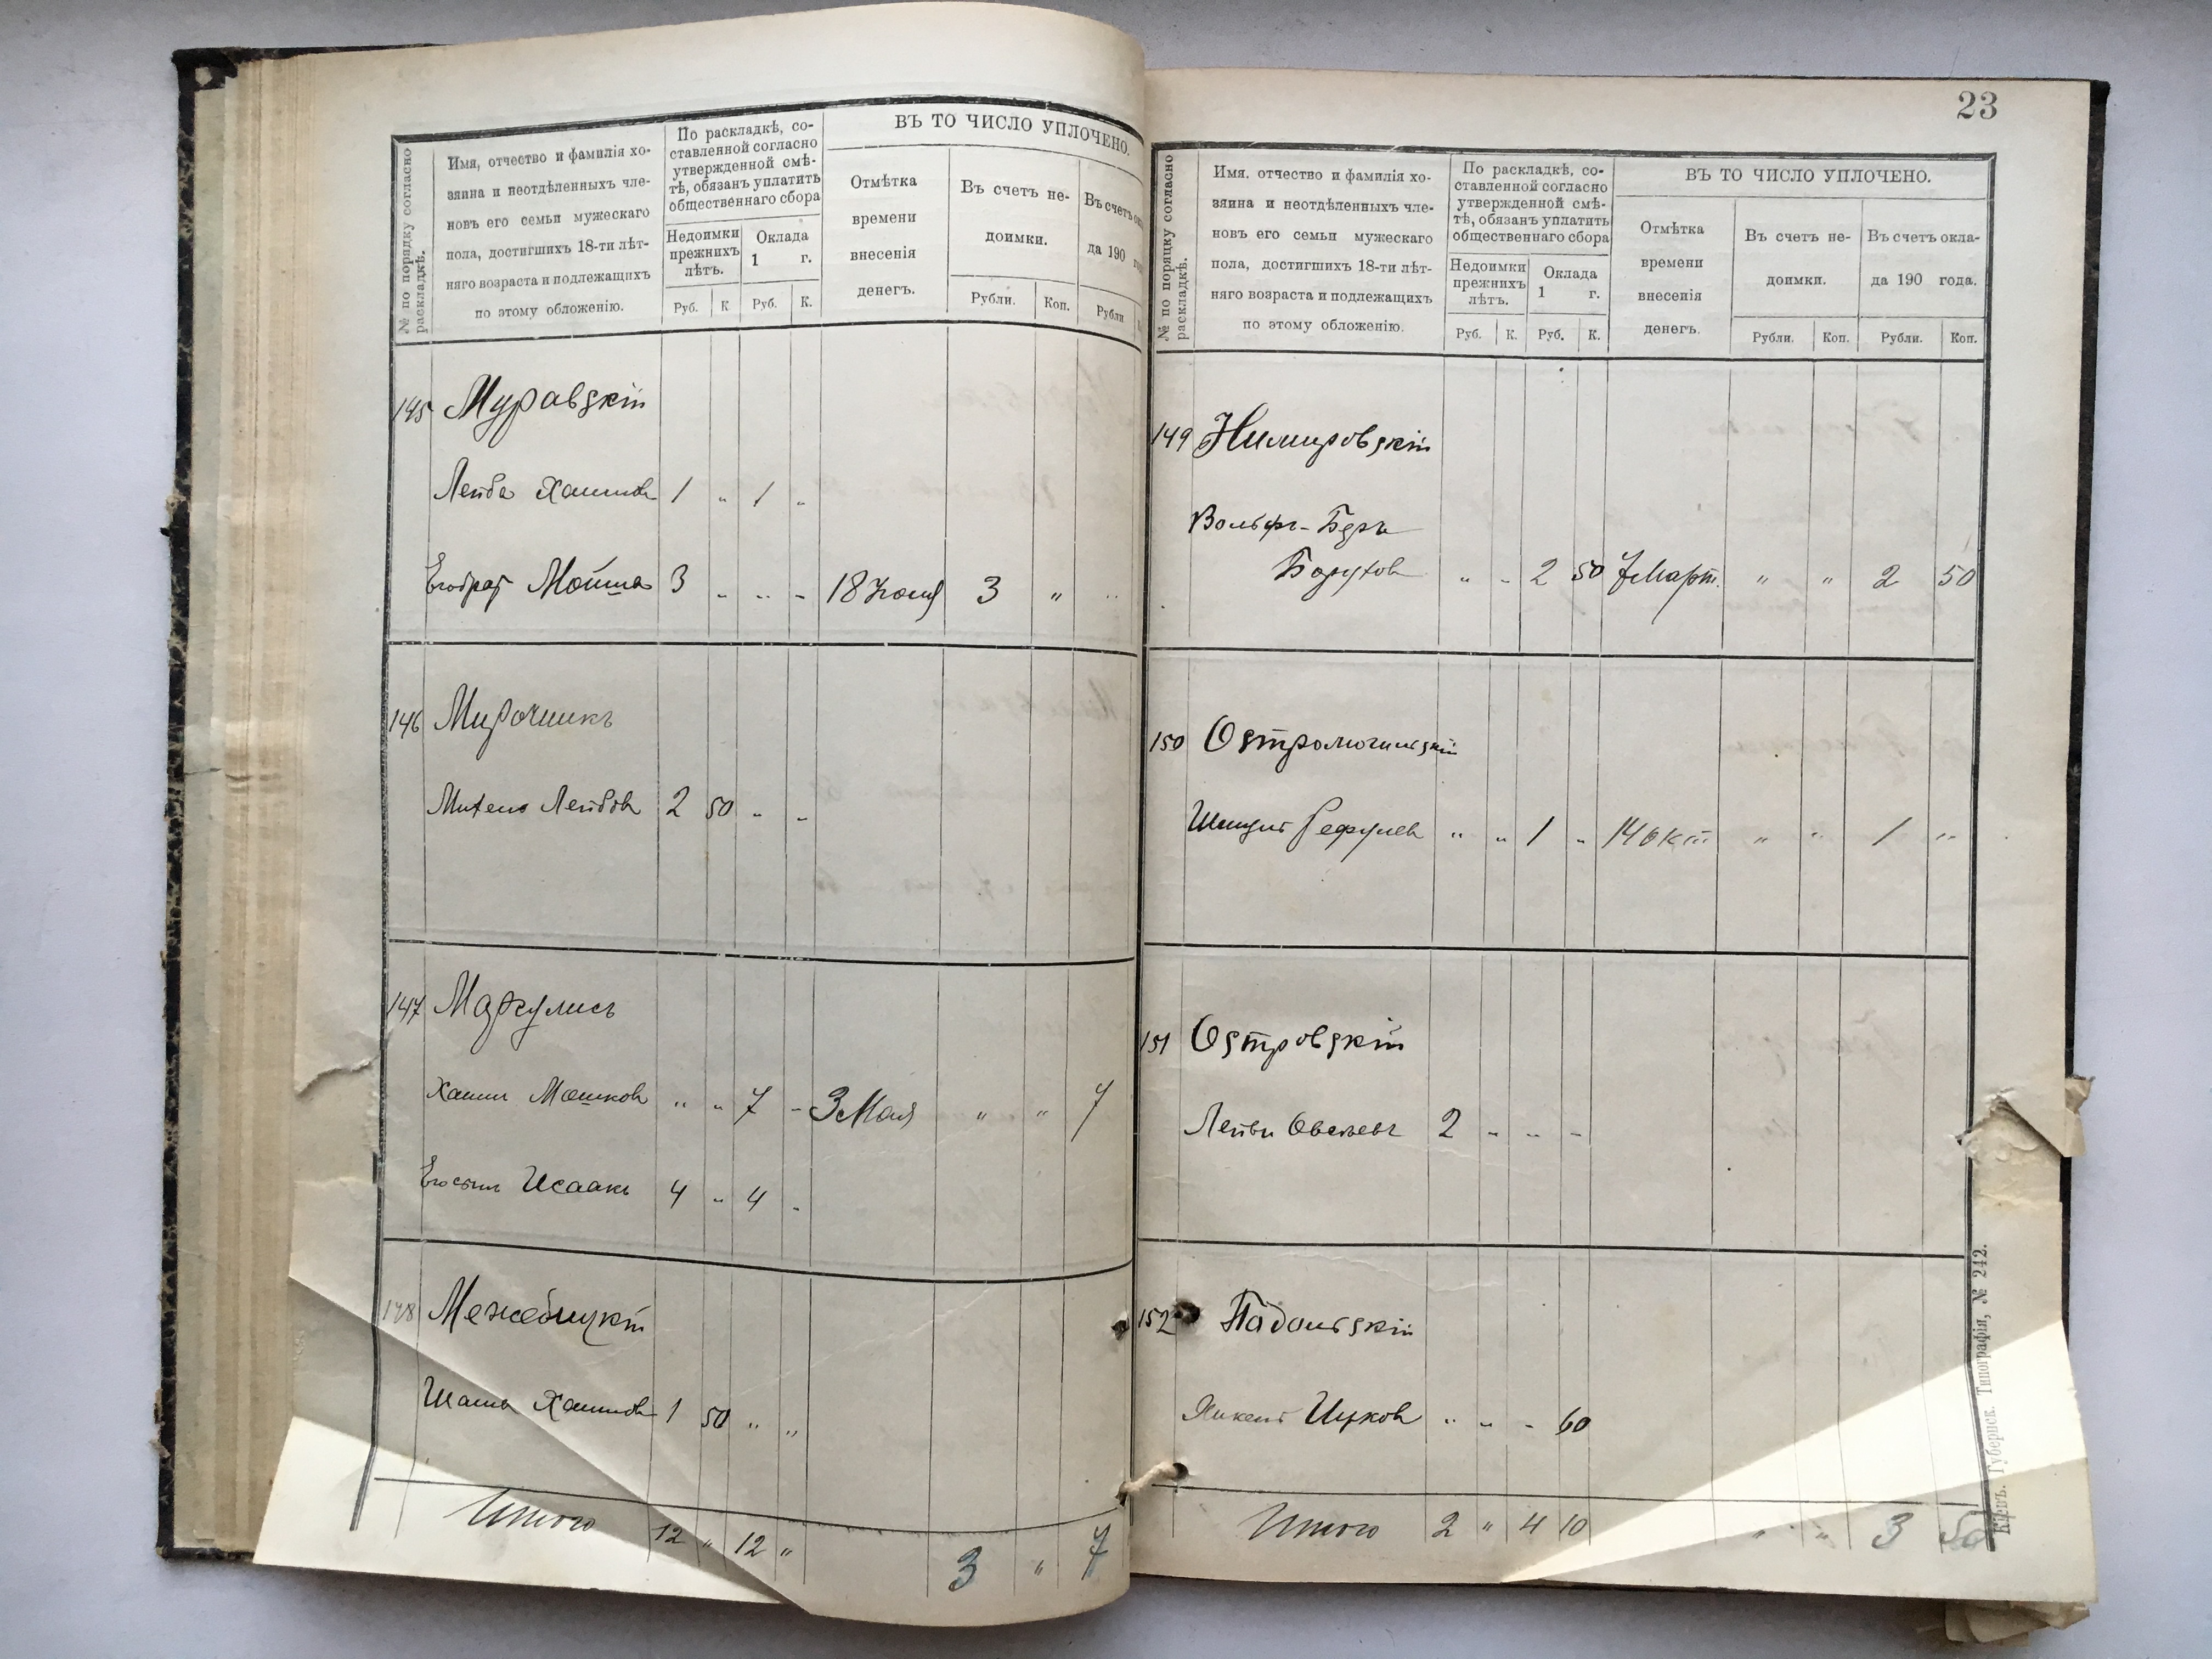 № по порядку согласно раскладкѣ.
Имя, отчество и фамилія хо-
зяина и неотдѣленныхъ чле-
новъ его семьи мужескаго
пола, достигшихъ 18-ти лѣт-
няго возраста и подлежащихъ
по этому обложенію.
По раскладкѣ, со-
ставленной согласно
утвержденной смѣ-
тѣ, обязанъ уплатить
общественнаго сбора
Недоимки
прежнихъ
лѣтъ.
Оклада
1 г.
Руб. К Руб. К.
ВЪ ТО ЧИСЛО УПЛОЧЕНО.
Отмѣтка
времени
внесенія
денегъ.
Въ счетъ не-
доимки.
Рубли. Коп.
Въ счетъ
да 190
Рубли
145 Муравскій
Лейба Хаимов 1 " 1 "
Мойша 3 " " " 18 Июня 3 " "
146 Мирочникъ
Михель Лейбов 2 50 " "
147 Маргулисъ
Хаим Мошков " " 7 - 3 Мая " " 7
Его сынъ Исаакъ 4 " 4 "
148
Хаимов 1 50 " "
Итого 12 " 12 " 3 " 7
23
№ по поряцку согласно раскладкѣ.
Имя, отчество и фамилія хо-
зяина и неотдѣленныхъ чле-
новъ его семьи мужескаго
пола, достигшихъ 18-ти лѣт-
няго возраста и подлежащихъ
по этому обложенію.
По раскладкѣ, со-
ставленной согласно
утвержденной смѣ-
тѣ, обязанъ уплатить
общественнаго сбора
Недоимки
прежнихъ
лѣтъ.
Оклада
1 г.
Руб. К. Руб. К.
ВЪ ТО ЧИСЛО УПЛОЧЕНО.
Отмѣтка
времени
внесенія
денегъ.
Въ счетъ не-
доимки.
Рубли. Коп.
Въ счетъ окла-
да 190 года.
Рубли. Коп.
149 Нимировскій
Вольфъ-Беръ
Борухов " " 2 50 7 Март. " " 2 50
150 Остромогильскій
" " 1 " 14 Окт " " 1 "
151 Островскій
2 " " "
152
Ицков " " - 60
Итого 2 " 4 10 " " 3 50
Кіевъ. Губернск. Типографія, № 242.